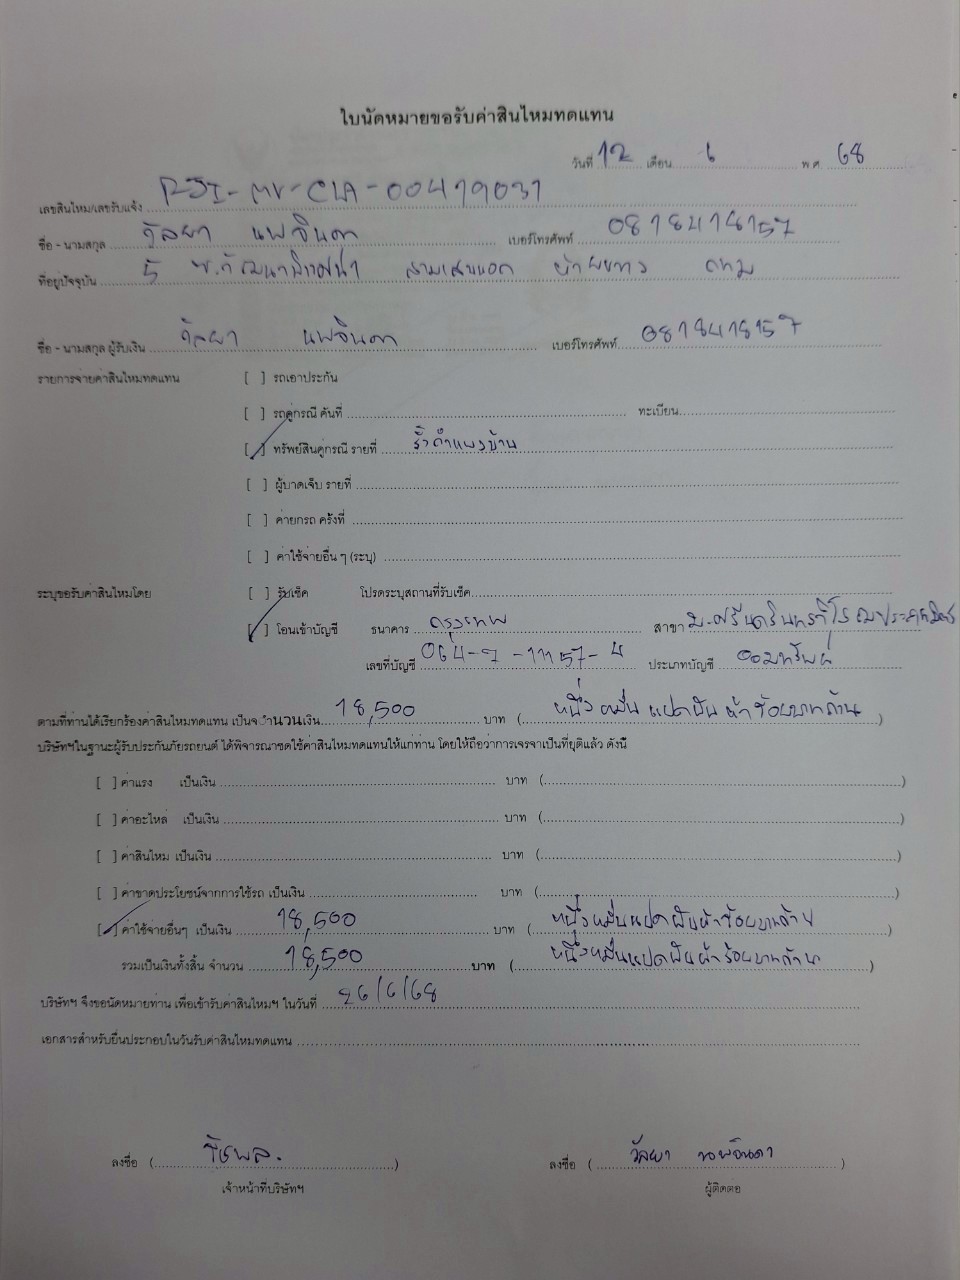 ใบนัดหมายขอรับค่าสินไหมทดแทน
วันที่ 12 เดือน 6 พ.ศ. 68
เลขสินไหม/เลขรับแจ้ง
ชื่อ - นามสกุล วัลยา นพจินดา เบอร์โทรศัพท์ 0818418157
ที่อยู่ปัจจุบัน 5 สามเสนนอก ห้วยขวาง กทม
ชื่อ - นามสกุล ผู้รับเงิน วัลยา นพจินดา เบอร์โทรศัพท์ 0818418157
รายการจ่ายค่าสินไหมทดแทน [ ] รถเอาประกัน
[ ] รถคู่กรณี คันที่ ทะเบียน
[/] ทรัพย์สินคู่กรณี รายที่ รั้วกำแพงบ้าน
[ ] ผู้บาดเจ็บ รายที่
[ ] ค่ายกรถ ครั้งที่
[ ] ค่าใช้จ่ายอื่น ๆ (ระบุ)
ระบุขอรับค่าสินไหมโดย [ ] รับเช็ค โปรดระบุสถานที่รับเช็ค
[/] โอนเข้าบัญชี ธนาคาร กรุงเทพ สาขา ม.ศรีนครินทรวิโรฒประสานมิตร
เลขที่บัญชี ประเภทบัญชี ออมทรัพย์
ตามที่ท่านได้เรียกร้องค่าสินไหมทดแทน เป็นจำนวนเงิน 18,500 บาท (หนึ่งหมื่นแปดพันห้าร้อยบาทถ้วน)
บริษัทฯในฐานะผู้รับประกันภัยรถยนต์ ได้พิจารณาชดใช้ค่าสินไหมทดแทนให้แก่ท่าน โดยให้ถือว่าการเจรจาเป็นที่ยุติแล้ว ดังนี้
[ ] ค่าแรง เป็นเงิน บาท ( )
[ ] ค่าอะไหล่ เป็นเงิน บาท ( )
[ ] ค่าสินไหม เป็นเงิน บาท ( )
[ ] ค่าขาดประโยชน์จากการใช้รถ เป็นเงิน บาท ( )
[/] ค่าใช้จ่ายอื่นๆ เป็นเงิน 18,500 บาท (หนึ่งหมื่นแปดพันห้าร้อยบาทถ้วน)
รวมเป็นเงินทั้งสิ้น จำนวน 18,500 บาท (หนึ่งหมื่นแปดพันห้าร้อยบาทถ้วน)
บริษัทฯ จึงขอนัดหมายท่าน เพื่อเข้ารับค่าสินไหมฯ ในวันที่ 26/6/68
เอกสารสำหรับยื่นประกอบในวันรับค่าสินไหมทดแทน
ลงชื่อ ( ) ลงชื่อ (วัลยา นพจินดา)
เจ้าหน้าที่บริษัทฯ ผู้ติดต่อ